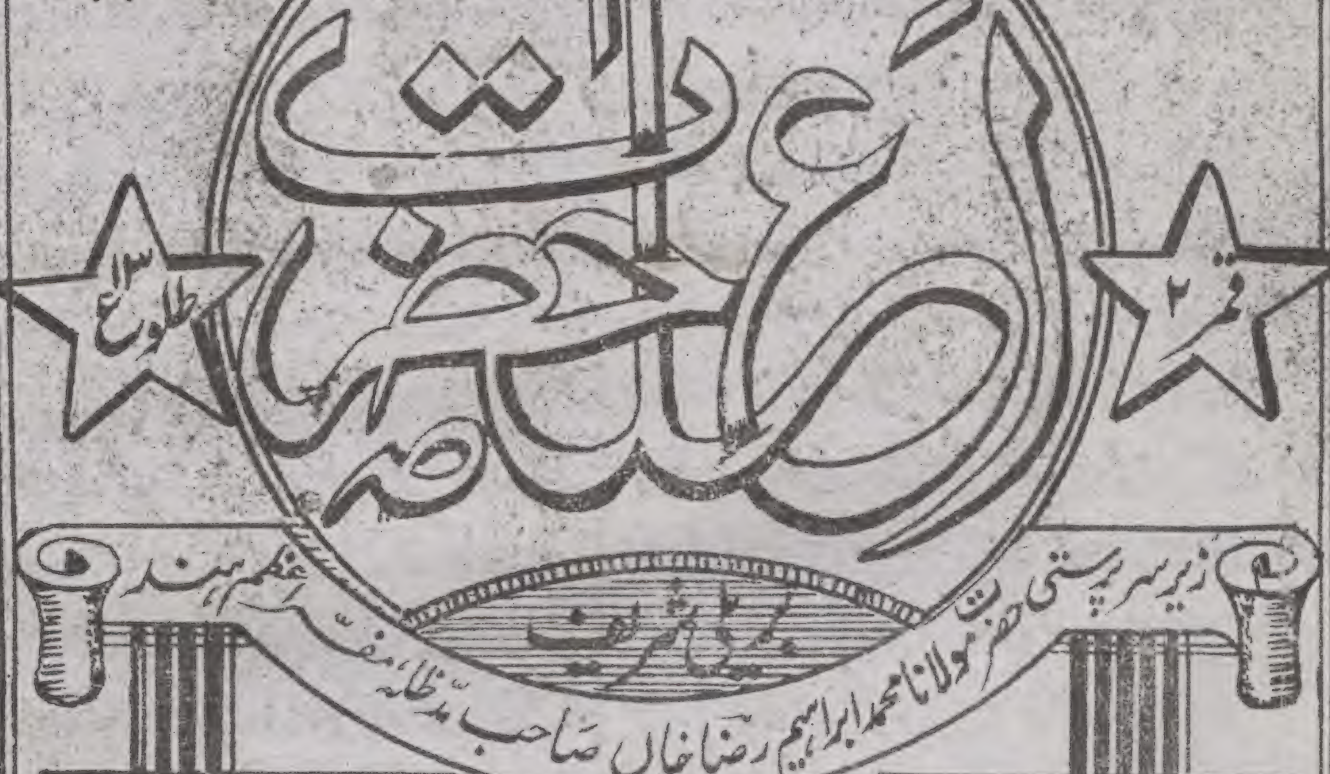 اعلیٰحضرت
قمر ۲
طلوع ۱۳
بریلی شریف
زیر سرپرستی حضرت مولانا محمد ابراہیم رضا خاں صاحب مدظلہ، مفسّر اعظم ہند